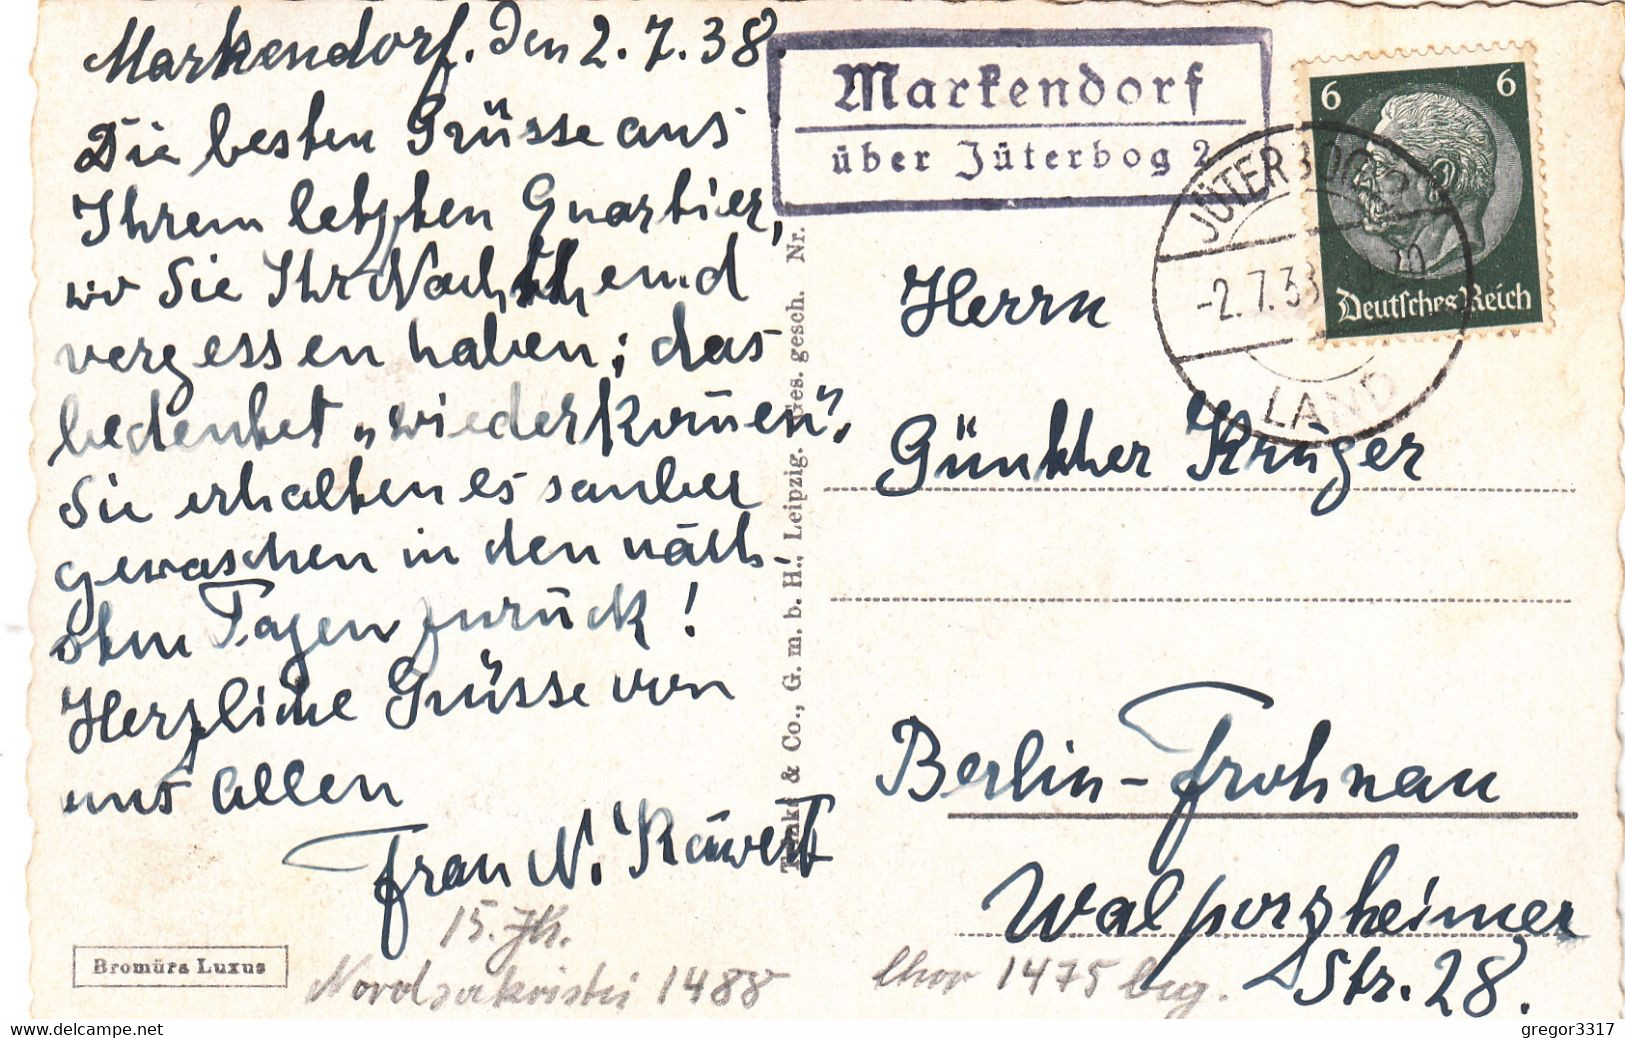 Markendorf. Den 2.7.38.
Die besten Grüsse aus
Ihrem letzten Quartier,
wo Sie Ihr Nachthemd
vergessen haben; das
bedeutet „wiederkom̄en“.
Sie erhalten es sauber
gewaschen in den näch-
sten Tagen zurück!
Herzliche Grüsse von
uns Allen
Frau N.
15. Jh.
Nordsakristei 1488
Bromüra Luxus
& Co., G. m. b. H., Leipzig. Ges. gesch. Nr.
Markendorf
über Jüterbog 2
JÜTERBOG 2
-2.7.38
LAND
6 6
Deutsches Reich
Herrn
Günther Krüger
Berlin-Frohnau
Walporzheimer
Str. 28.
Chor 1475 beg.
gregor3317